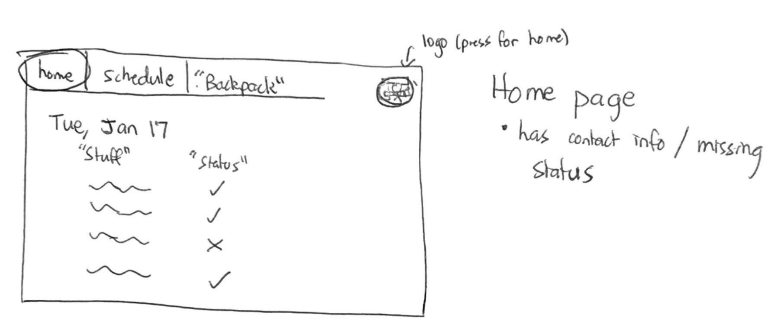 logo (press for home)
home schedule "Backpack"
Tue, Jan 17
"Stuff" "Status"
Home page
• has contact info / missing
status